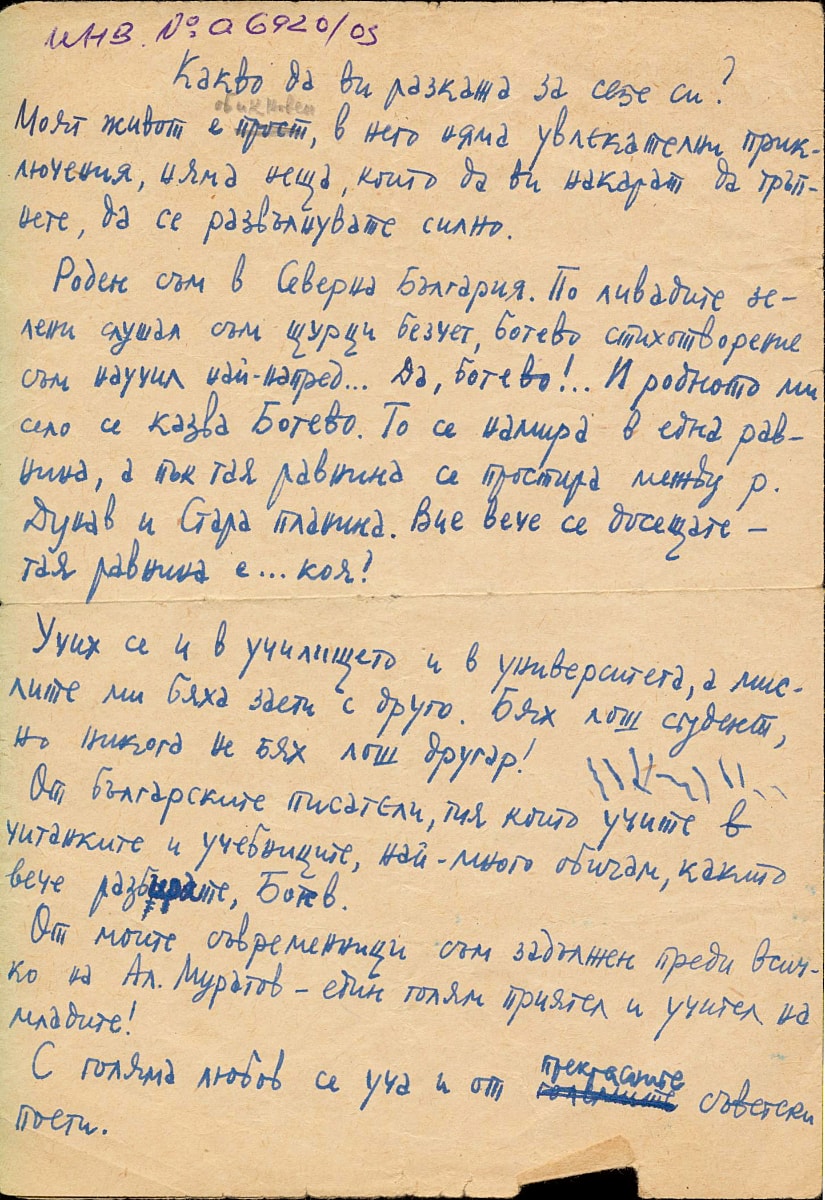 ИНВ. № а 6920/05
Какво да ви разкажа за себе си?
обикновен
Моят живот е прост, в него няма увлекателни прик-
лючения, няма неща, които да ви накарат да тръп-
нете, да се развълнувате силно.
Роден съм в Северна България. По ливадите зе-
лени слушал съм щурци безчет, ботево стихотворение
съм научил най-напред... Да, ботево!.. И родното ми
село се казва Ботево. То се намира в една рав-
нина, а пък тая равнина се простира между р.
Дунав и Стара планина. Вие вече се досещате –
тая равнина е... коя?
Учих се и в училището и в университета, а мис-
лите ми бяха заети с друго. Бях лош студент,
но никога не бях лош другар!
От българските писатели, тия които учите в
читанките и учебниците, най-много обичам, както
вече разбирате, Ботев.
От моите съвременници съм задължен преди всич-
ко на Ал. Муратов – един голям приятел и учител на
младите!
прекрасните
С голяма любов се уча и от големите съветски
поети.